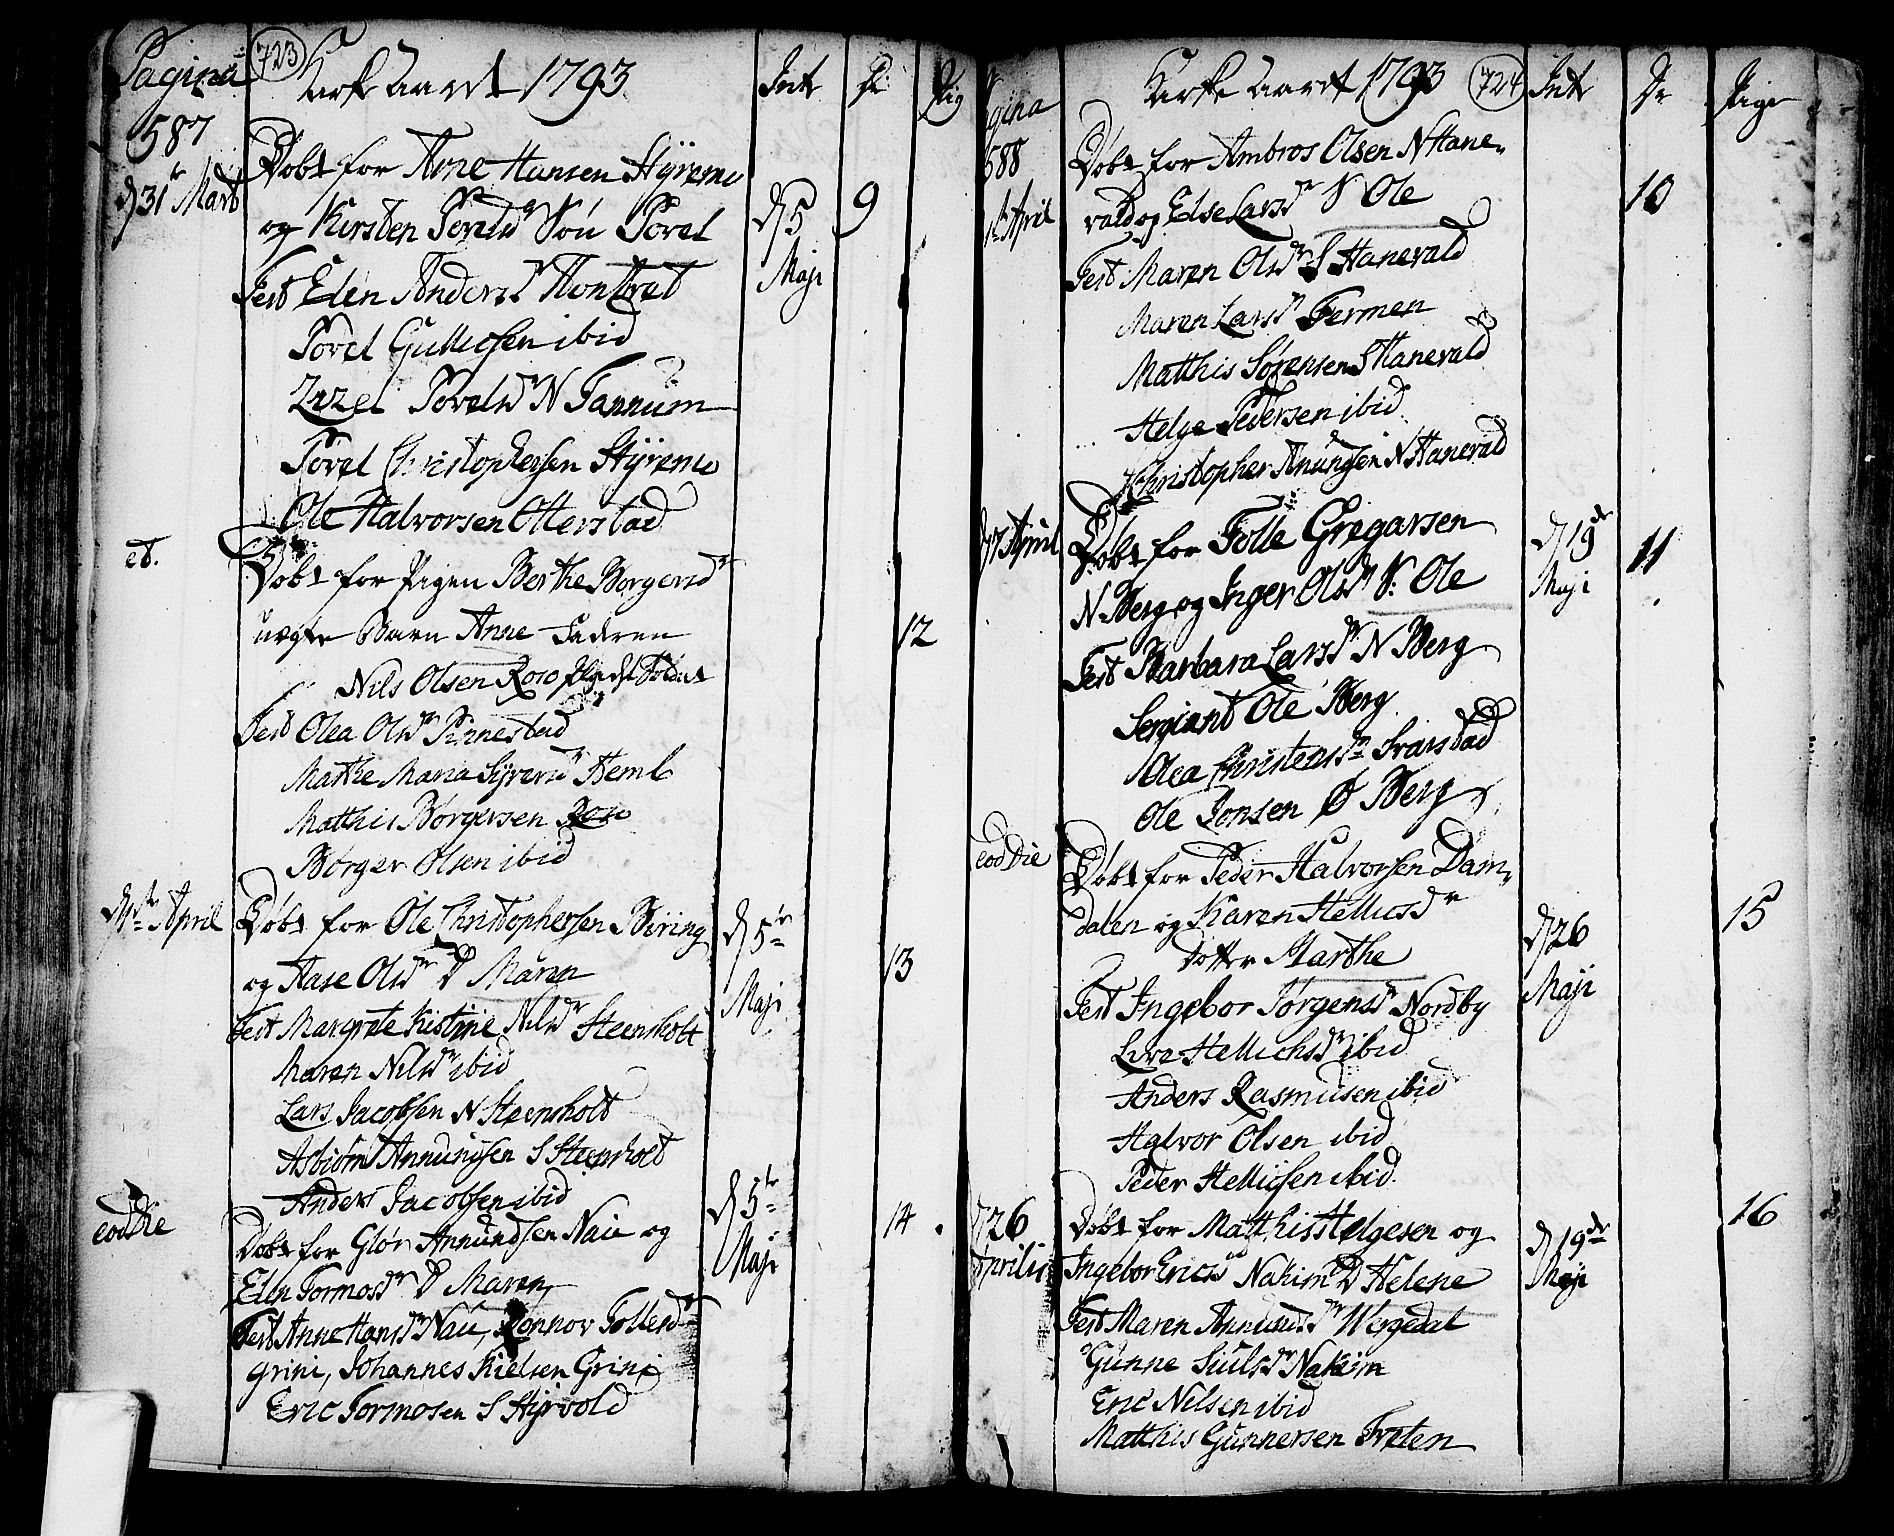 Pagina 723 Kirke Aaret 1793 Int Dr Pig
587
d 31 Mart Døbt for Arne Hansen Styremo
og Kirsten Torelsdr Søn Torel d 5 9
Test Elen Andersdr Maji
Torel Gullicsen ibid
Zizel Torelsdr N Tannum
Torel Christophersen Styremo
Ole Halvorsen Otterstad
et. Døbt for Pigen Berthe Borgersdr
uægte Barn Anne Faderen 12
Nils Olsen
Test Olea Olsdr Rinnestad
Marthe Maria Syversdr Heml
Matthis Børgersen
Børger Olsen ibid
d 1 April Døbt for Ole Christophersen Biring d 5
og Aase Olsdr D Maren 13
Test Margrete Kistine Nilsdr Steensholt Maji
Maren Nilsdr ibid
Lars Jacobsen N Steensholt
Asbiørn Annundsen S Steensholt
Anders Jacobsen ibid d 5
eod Die Døbt for Glør Annundsen Nau og 14
Elen Tormosdr D Maren Maji
Test Anne Hansdr Nau, Ronnov Tollefsdr
Grini, Johannes Kielsen Grini
Eric Tormosen S Hyrvold
gina Kirke Aaret 1793 724 Int Dr Pige
588 Døbt for Ambros Olsen N Hane-
1 April vald og Else Larsdr S Ole 10
Test Maren Olsdr S Hanevald
Maren Larsdr Fermen
Matthis Sørensen S Hanevald
Helge Pedersen ibid
Christopher Anunsen N Hanevald
April Døbt for Tolle Gregarsen d 19 11
N Berg og Inger Olsdr S: Ole Maji
Test Barbara Larsdr N Berg
Sergiant Ole Berg
Olea Christensdr Svarstad
Ole Jonsen Ø Berg
eod Die Døbt for Peder Halvorsen Dam-
dalen og Karen Hellicsdr 15
Dotter Marthe d 26
Test Ingebor Jørgensdr Nordby Maji
Live Hellichsdr ibid
Anders Rasmusen ibid
Halvor Olsen ibid
Peder Hellicsen ibid.
d 26 Døbt for Matthis Helgesen og d 19 16
Aprilis Ingebor Ericsdr Nakim D Helene Maji
Test Maren Annundsdr Wergedal
Gunne Siulsdr Nakim
Eric Nilsen ibid
Matthis Gunnersen Freten